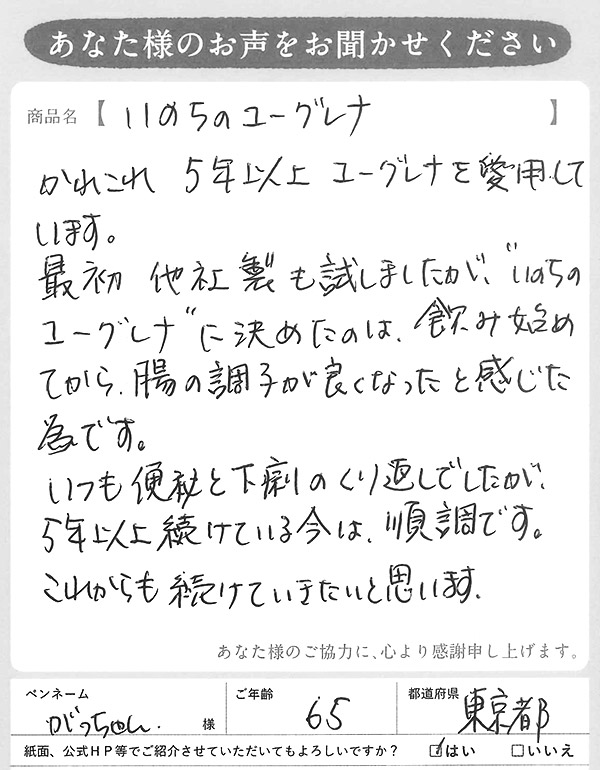 あなた様のお声をお聞かせください
商品名【 いのちのユーグレナ 】
かれこれ 5年以上 ユーグレナを愛用して
います。
最初 他社製も試しましたが、"いのちの
ユーグレナ"に決めたのは、飲み始め
てから、腸の調子が良くなったと感じた
為です。
いつも便秘と下痢のくり返しでしたが、
5年以上続けている今は、順調です。
これからも続けていきたいと思います。
あなた様のご協力に、心より感謝申し上げます。
ペンネーム がっちゃん 様 ご年齢 65 都道府県 東京都
紙面、公式HP等でご紹介させていただいてもよろしいですか? ☑はい □いいえ